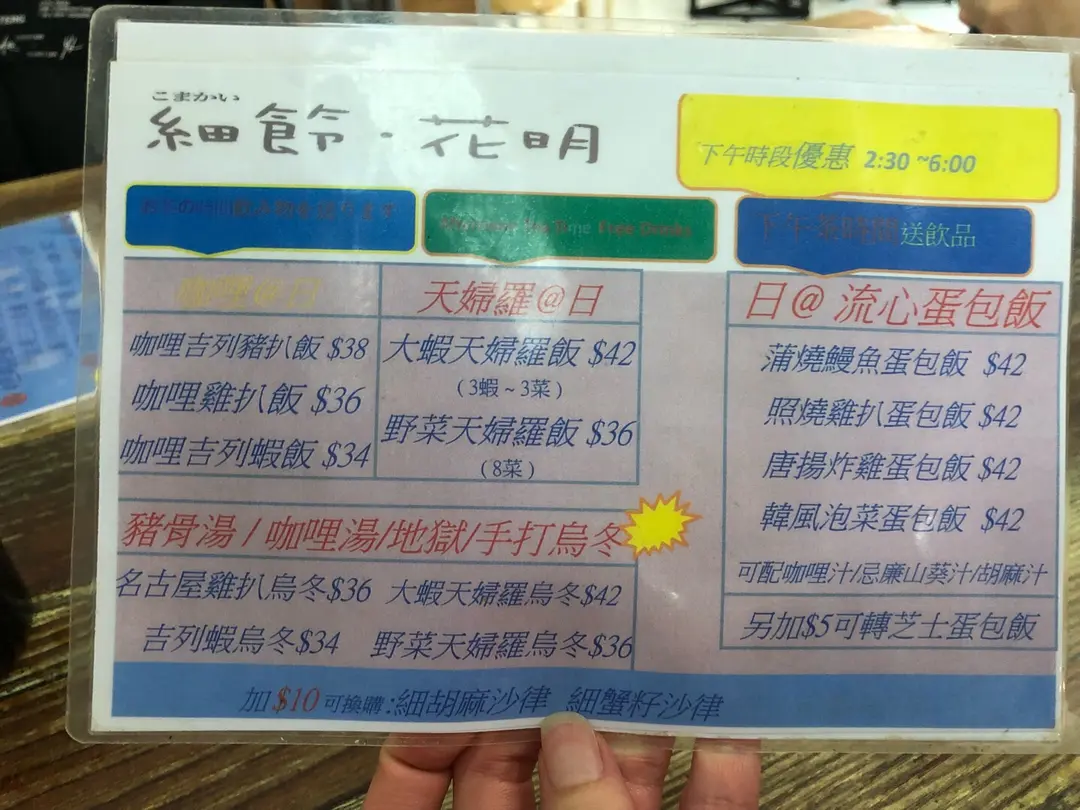 こまかい
細飾・花明
下午時段優惠 2:30 ~6:00
Free Drinks
下午茶時間送飲品
咖哩@日
咖哩吉列豬扒飯 $38
咖哩雞扒飯 $36
咖哩吉列蝦飯 $34
天婦羅@日
大蝦天婦羅飯 $42
(3蝦~3菜)
野菜天婦羅飯 $36
(8菜)
日@ 流心蛋包飯
蒲燒鰻魚蛋包飯 $42
照燒雞扒蛋包飯 $42
唐揚炸雞蛋包飯 $42
韓風泡菜蛋包飯 $42
可配咖哩汁/忌廉山葵汁/胡麻汁
另加$5可轉芝士蛋包飯
豬骨湯 / 咖哩湯/地獄/手打烏冬
名古屋雞扒烏冬$36 大蝦天婦羅烏冬$42
吉列蝦烏冬$34 野菜天婦羅烏冬$36
加 $10 可換購:細胡麻沙律 細蟹籽沙律